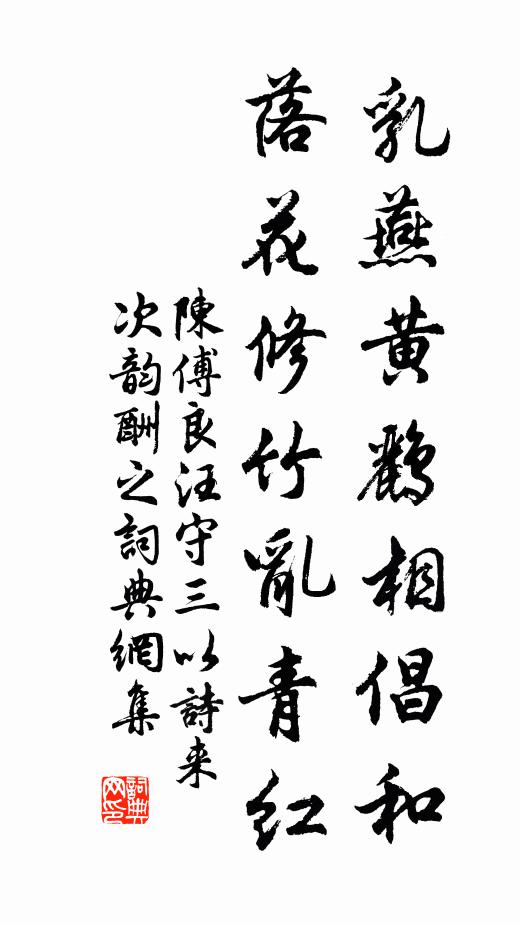 乳燕黄鸝相倡和
落花修竹亂青红
陳傅良汪守三以詩来
次韵酬之詞典網集
詞典网印